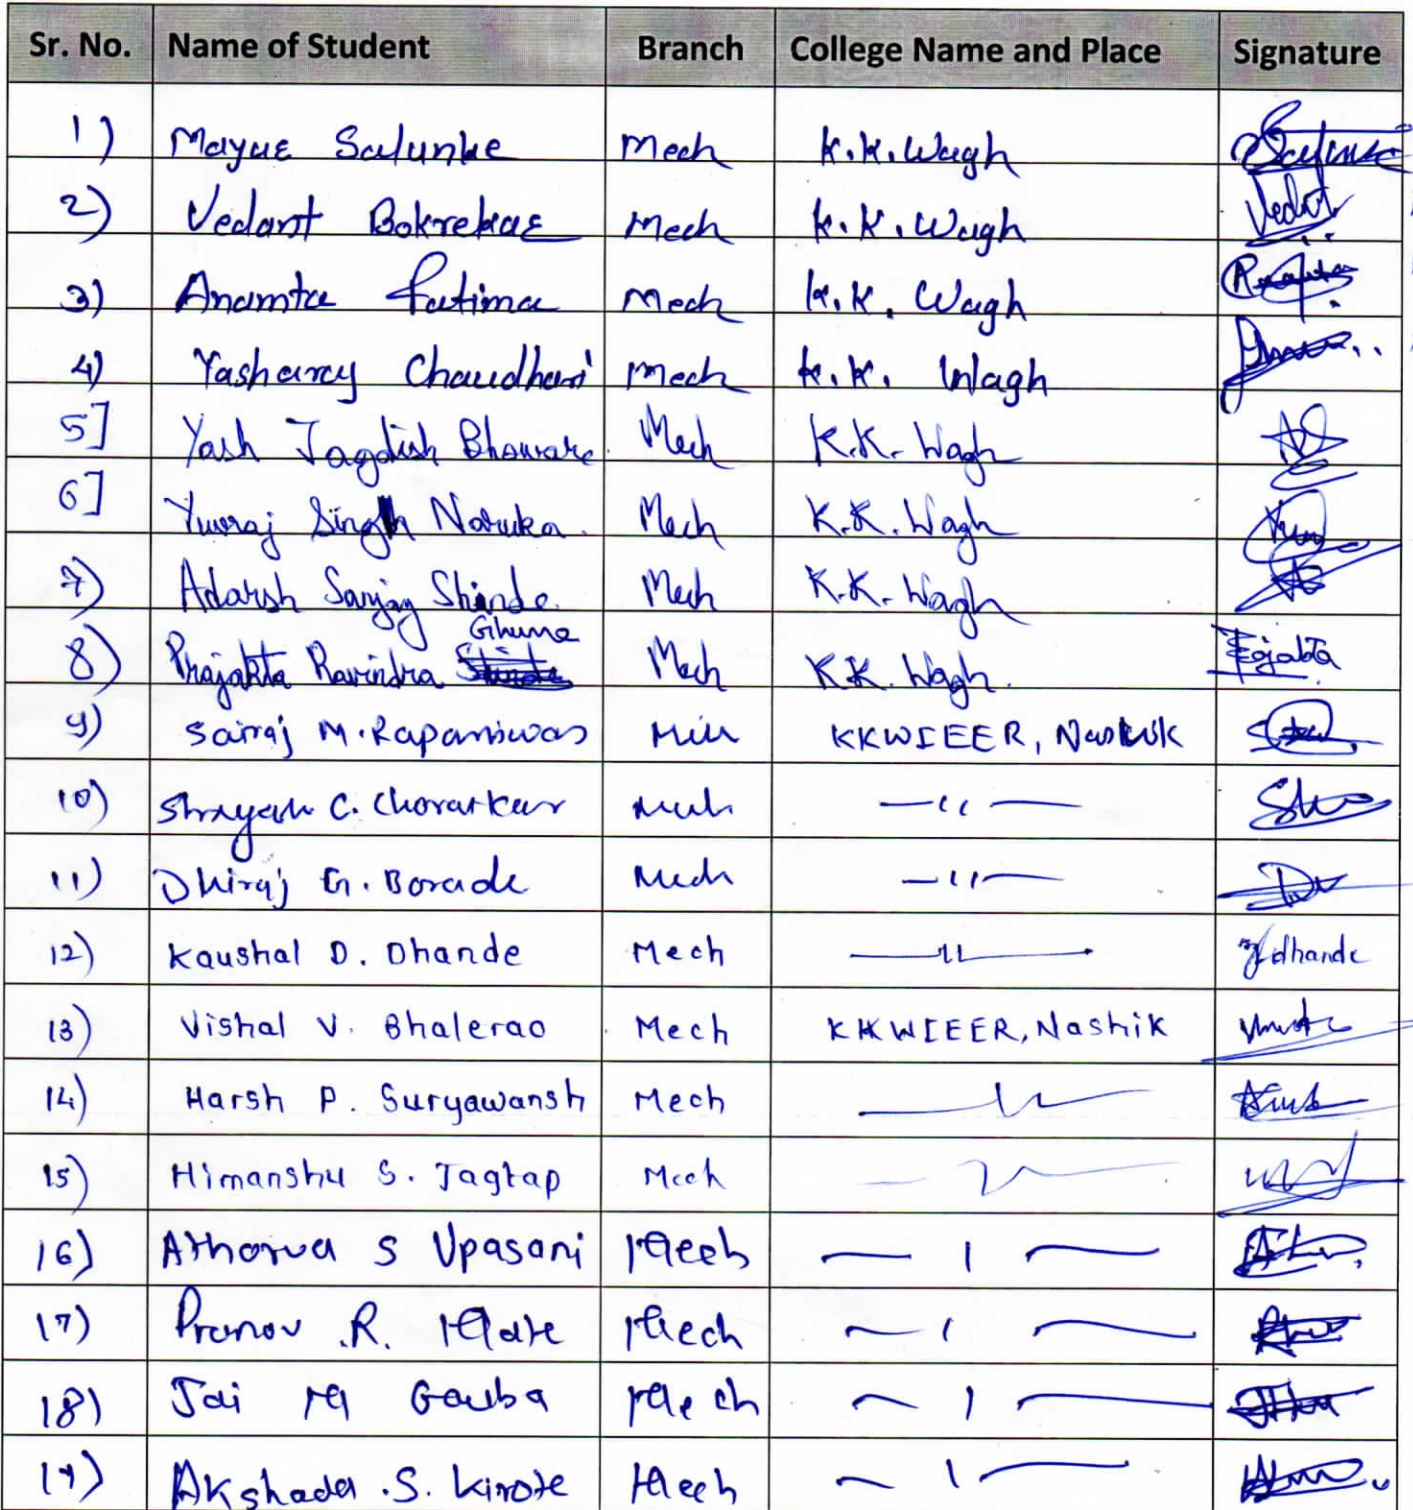 Sr. No. Name of Student Branch College Name and Place Signature
1) Mayur Salunke Mech K.K. Wagh
2) Vedant Bokrekar Mech K.K. Wagh Vedant
3) Anamta Fatima Mech K.K. Wagh
4) Yasharay Chaudhari Mech K.K. Wagh
5] Yash Jagdish Bhaware Mech K.K. Wagh
6] Yuvraj Singh Naruka. Mech K.K. Wagh
7) Adarsh Sanjay Shinde. Mech K.K. Wagh
Ghume
8) Prajakta Ravindra Mech K.K. Wagh.
9) Sairaj M. Rapaniwas Mech KKWIEER, Nashik
10) Shreyash C. Chorarkar Mech —〃—
11) Dhiraj G. Borade Mech —〃—
12) Kaushal D. Dhande Mech —〃— dhande
13) Vishal V. Bhalerao Mech KKWIEER, Nashik
14) Harsh P. Suryawansh Mech —〃—
15) Himanshu S. Jagtap Mech —〃—
16) Atharva S Upasani Mech — ı —
17) Pranav .R. Mate Mech — ı —
18) Jai M Gauba Mech — ı —
19) Akshada .S. Kirote Mech — ı —